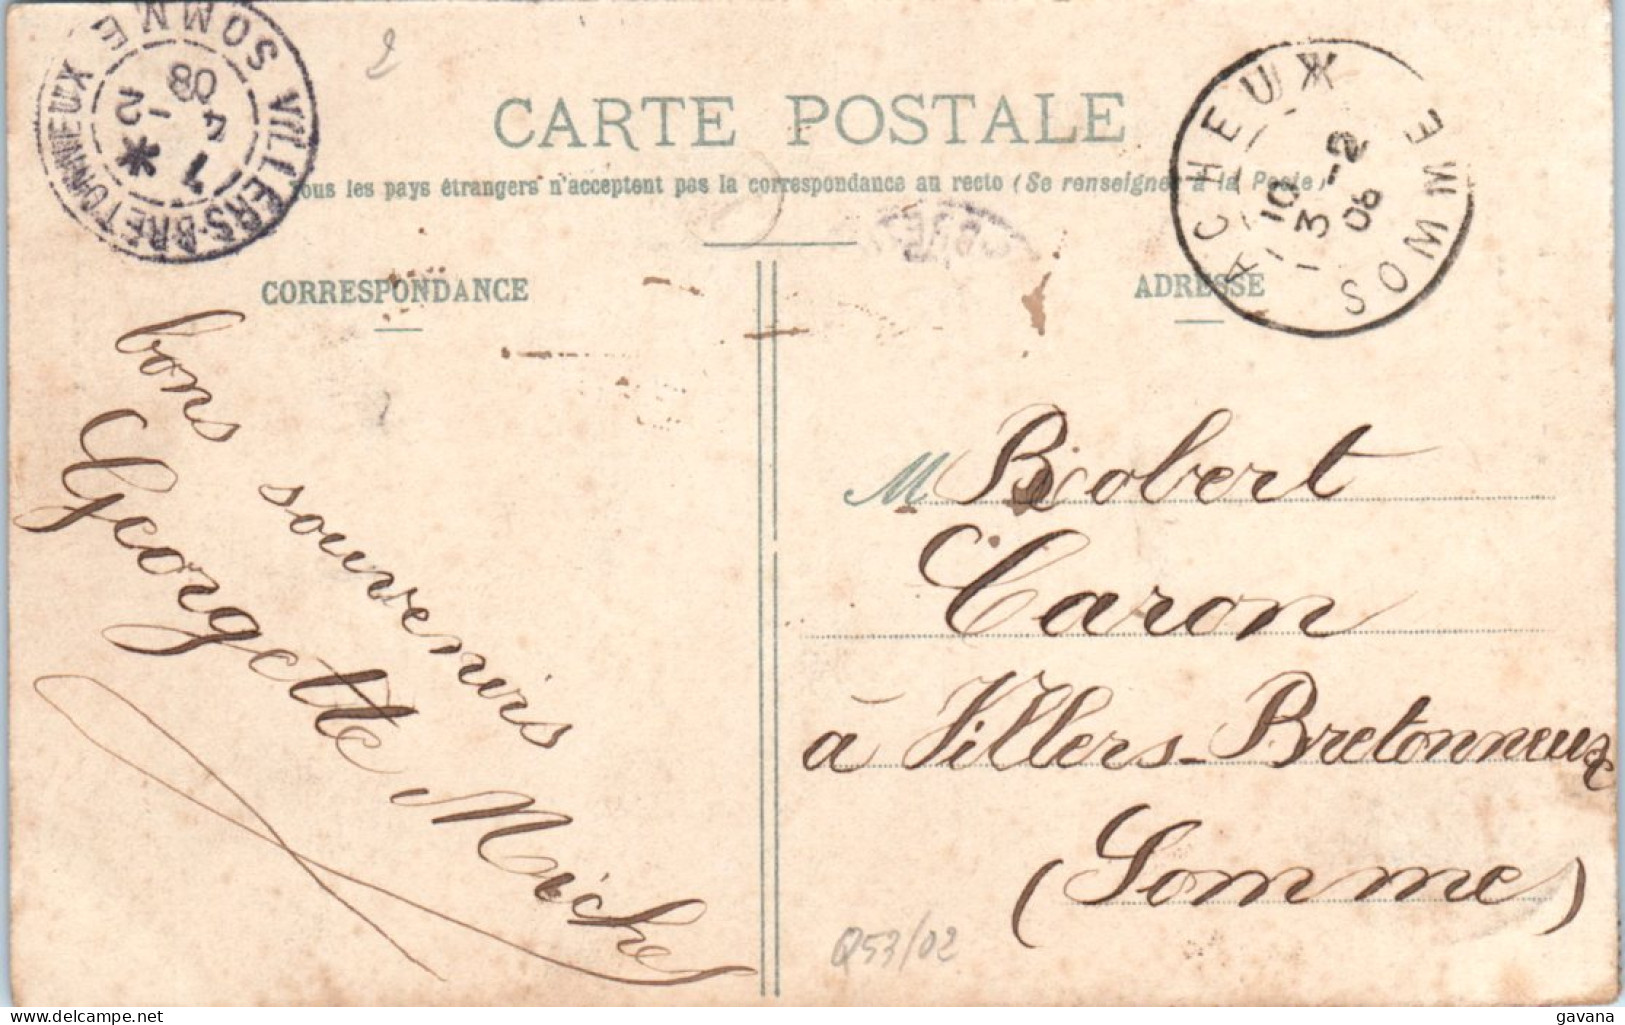 VILLERS-BRETONNEUX SOMME
1
4 - 2
08
2
CARTE POSTALE
Tous les pays étrangers n'acceptent pas la correspondance au recto (Se renseigner à la Poste)
ACHEUX
10
3 -2
08
SOMME
CORRESPONDANCE
bons souvenirs
Georgette Michel
ADRESSE
M Robert
Caron
à Villers-Bretonneux
(Somme)
Q53/02
delcampe.net
gavana